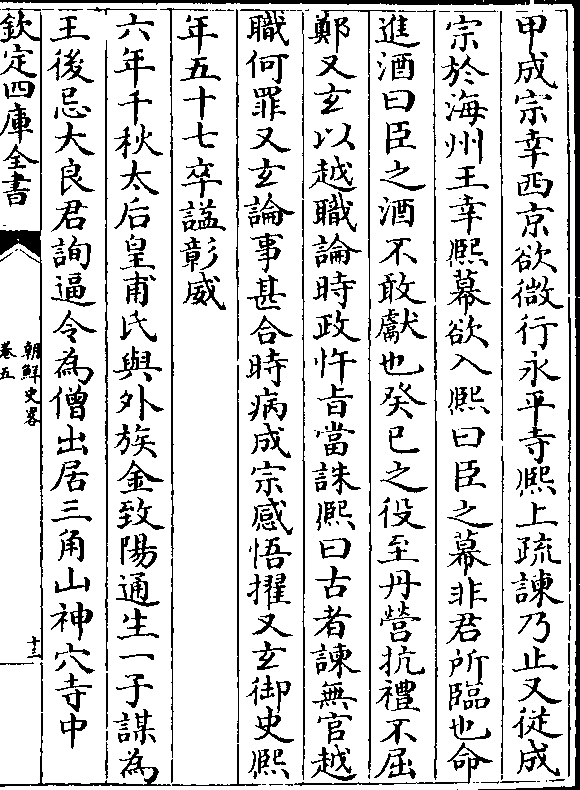 甲成宗幸西京欲微行永平寺熙上疏諫乃止又從成
宗於海州王幸熙幕欲入熙曰臣之幕非君所臨也命
進酒曰臣之酒不敢獻也癸巳之役至丹營抗禮不屈
鄭又玄以越職論時政忤旨當誅熙曰古者諫無官越
職何罪又玄論事甚合時病成宗感悟擢又玄御史熙
年五十七卒諡彰威
六年千秋太后皇甫氏與外族金致陽通生一子謀為
王後忌大良君詢逼令為僧出居三角山神穴寺中
欽定四庫全書
朝鮮史畧
卷五
十三